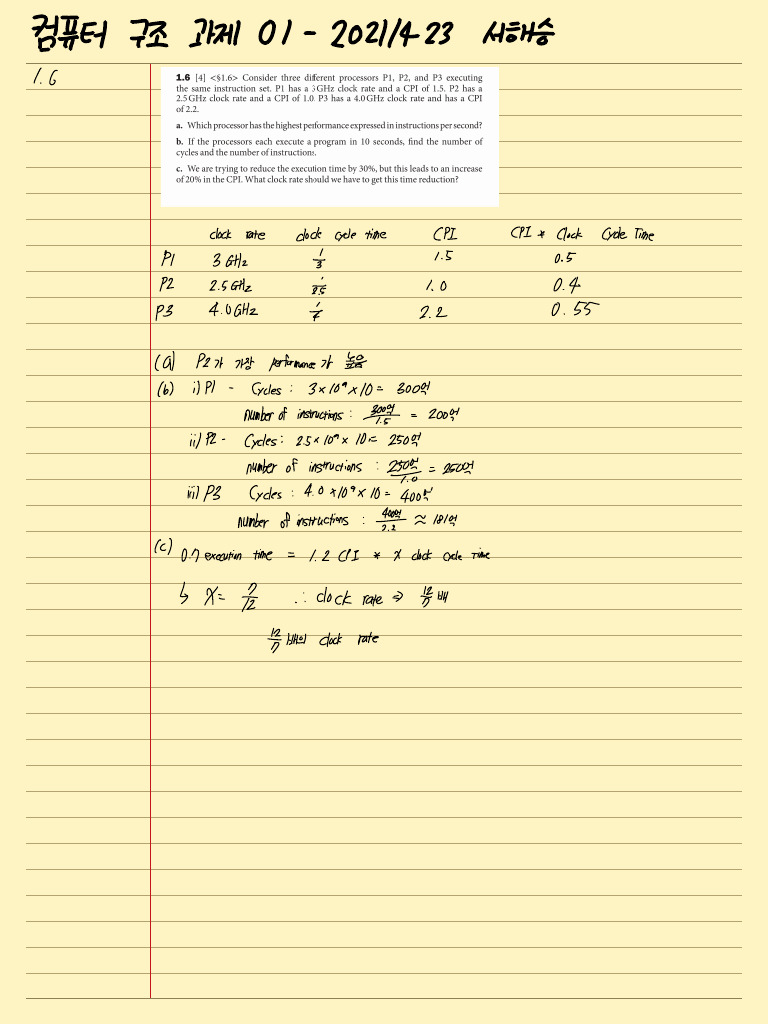 컴퓨터 구조 과제 01 - 2021/4-23 서해승
1.6
1.6 [4] <§1.6> Consider three different processors P1, P2, and P3 executing
the same instruction set. P1 has a 3 GHz clock rate and a CPI of 1.5. P2 has a
2.5 GHz clock rate and a CPI of 1.0. P3 has a 4.0 GHz clock rate and has a CPI
of 2.2.
a. Which processor has the highest performance expressed in instructions per second?
b. If the processors each execute a program in 10 seconds, find the number of
cycles and the number of instructions.
c. We are trying to reduce the execution time by 30%, but this leads to an increase
of 20% in the CPI. What clock rate should we have to get this time reduction?
clock rate clock cycle time CPI CPI * Clock Cycle Time
P1 3 GHz 1/3 1.5 0.5
P2 2.5 GHz 1/2.5 1.0 0.4
P3 4.0 GHz 1/4 2.2 0.55
(a) P2가 가장 performance가 높음
(b) i) P1 - Cycles : 3×10⁹×10 = 300억
Number of instructions : 300억/1.5 = 200억
ii) P2 - Cycles : 2.5×10⁹×10 = 250억
number of instructions : 250억/1.0 = 250억
iii) P3 Cycles : 4.0×10⁹×10 = 400억
number of instructions : 400억/2.2 ≈ 181억
(c) 0.7 execution time = 1.2 CPI * x clock cycle time
↳ x = 7/12 ∴ clock rate ⇒ 12/7 배
12/7 배의 clock rate